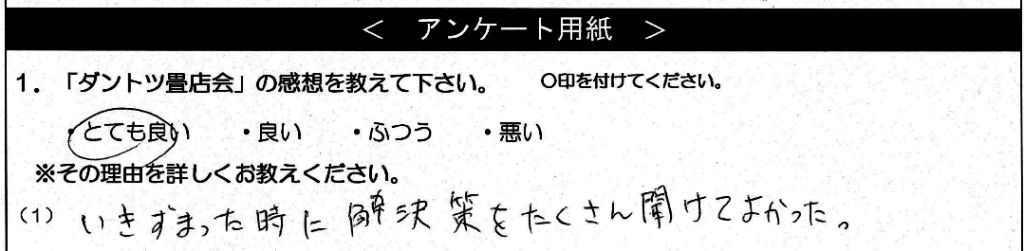 ＜ アンケート用紙 ＞
1．「ダントツ畳店会」の感想を教えて下さい。 〇印を付けてください。
・とても良い ・良い ・ふつう ・悪い
※その理由を詳しくお教えください。
(1) いきずまった時に解決策をたくさん聞けてよかった。